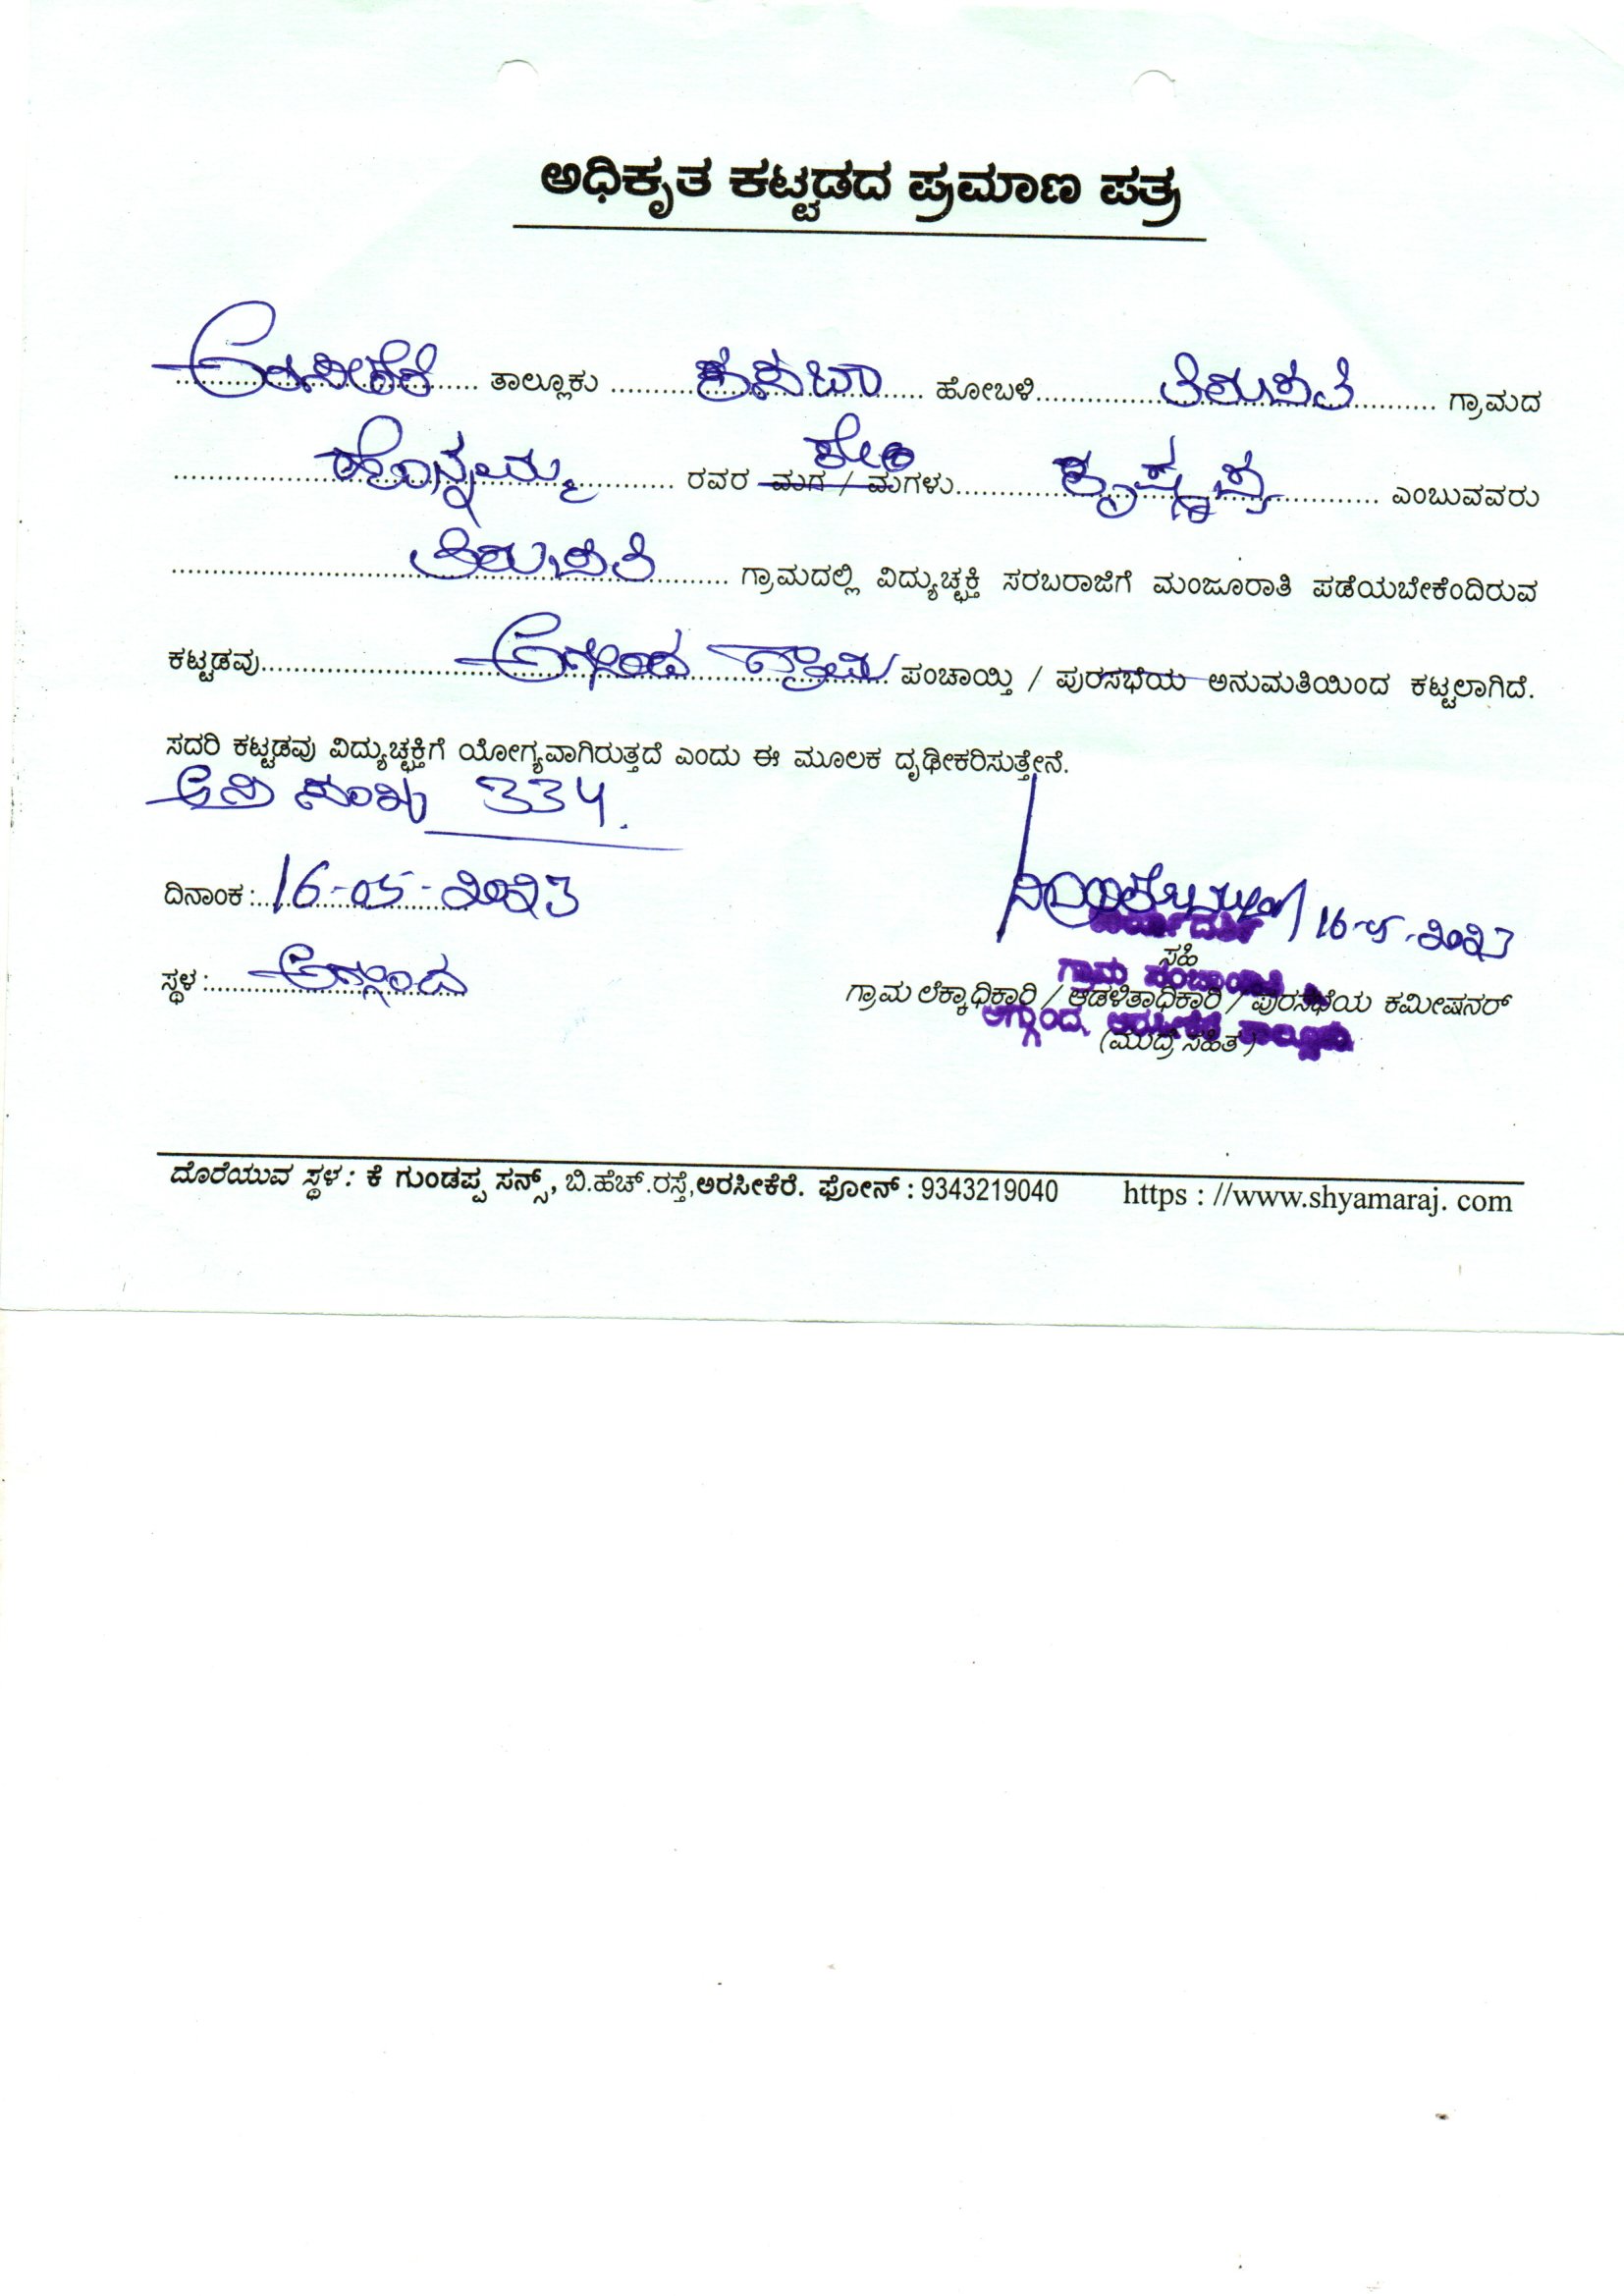 ಅಧಿಕೃತ ಕಟ್ಟಡದ ಪ್ರಮಾಣ ಪತ್ರ
ಅರಸೀಕೆರೆ ತಾಲ್ಲೂಕು ಕಸಬಾ ಹೋಬಳಿ ತಿರುಪತಿ ಗ್ರಾಮದ
ಕೋಂ
ಹೊನ್ನಮ್ಮ ರವರ ಮಗ / ಮಗಳು ಕೃಷ್ಣಪ್ಪ ಎಂಬುವವರು
ತಿರುಪತಿ ಗ್ರಾಮದಲ್ಲಿ ವಿದ್ಯುಚ್ಛಕ್ತಿ ಸರಬರಾಜಿಗೆ ಮಂಜೂರಾತಿ ಪಡೆಯಬೇಕೆಂದಿರುವ
ಕಟ್ಟಡವು ಅಗ್ಗುಂದ ಗ್ರಾಮ ಪಂಚಾಯ್ತಿ / ಪುರಸಭೆಯ ಅನುಮತಿಯಿಂದ ಕಟ್ಟಲಾಗಿದೆ.
ಸದರಿ ಕಟ್ಟಡವು ವಿದ್ಯುಚ್ಛಕ್ತಿಗೆ ಯೋಗ್ಯವಾಗಿರುತ್ತದೆ ಎಂದು ಈ ಮೂಲಕ ದೃಢೀಕರಿಸುತ್ತೇನೆ.
334.
ದಿನಾಂಕ : 16-05-2023
16-5-2023
ಸಹಿ
ಸ್ಥಳ : ಅಗ್ಗುಂದ
ಗ್ರಾಮ ಪಂಚಾಯಿತಿ
ಗ್ರಾಮ ಲೆಕ್ಕಾಧಿಕಾರಿ / ಆಡಳಿತಾಧಿಕಾರಿ / ಪುರಸಭೆಯ ಕಮೀಷನರ್
ಅಗ್ಗುಂದ, ಅರಸೀಕೆರೆ ತಾಲ್ಲೂಕು
(ಮುದ್ರೆ ಸಹಿತ)
ದೊರೆಯುವ ಸ್ಥಳ : ಕೆ ಗುಂಡಪ್ಪ ಸನ್ಸ್, ಬಿ.ಹೆಚ್.ರಸ್ತೆ,ಅರಸೀಕೆರೆ. ಫೋನ್ : 9343219040 https : //www.shyamaraj. com